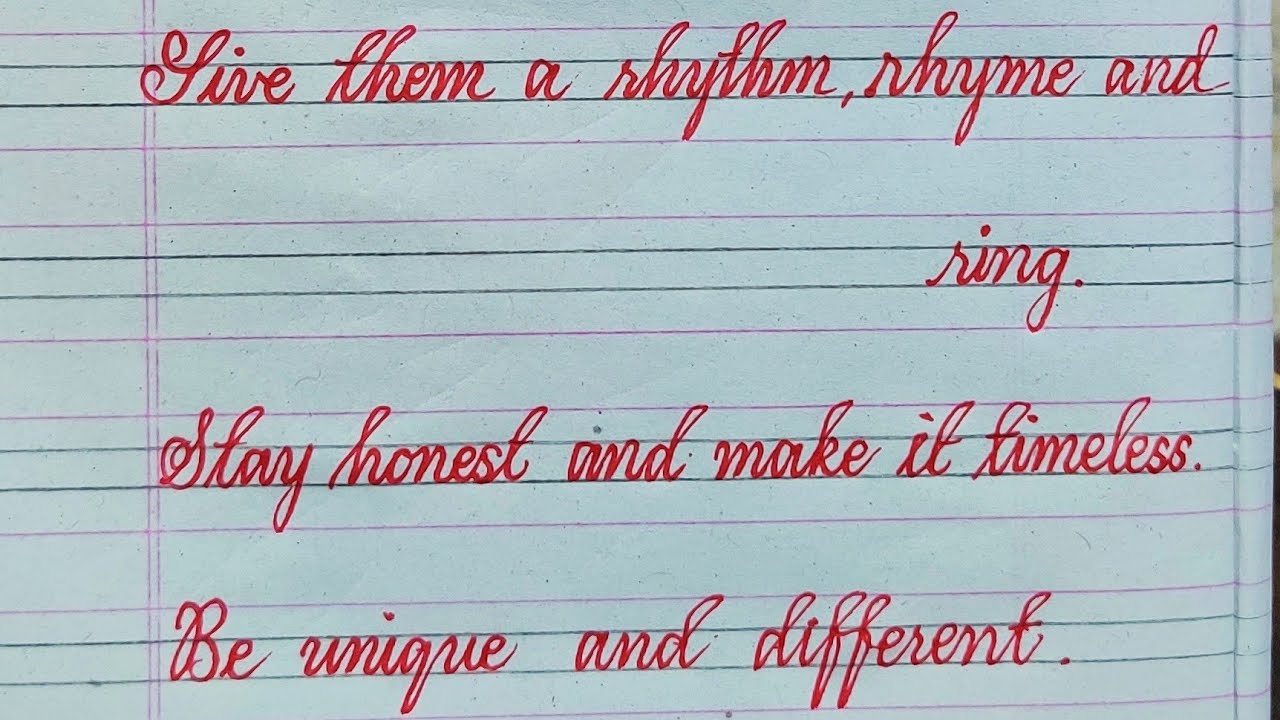 Give them a rhythm, rhyme and
ring.
Stay honest and make it timeless.
Be unique and different.